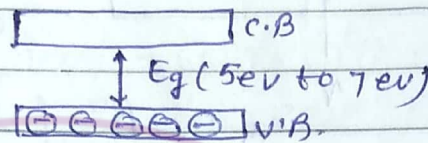 C.B
Eg (5ev to 7 ev)
V.B.